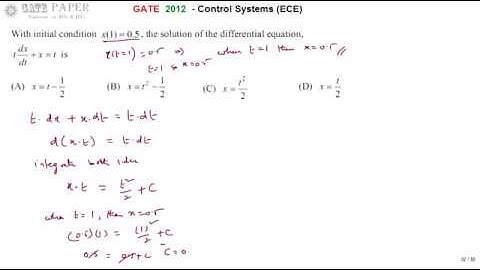 GATE PAPER
GATE 2012 - Control Systems (ECE)
With initial condition x(1) = 0.5, the solution of the differential equation,
t dx/dt + x = t is
x(t=1) = 0.5 ⇒ when t=1 then x=0.5 //
t=1 & x=0.5
(A) x = t - 1/2 (B) x = t² - 1/2 (C) x = t²/2 (D) x = t/2
t. dx + x. dt = t. dt
d(x.t) = t. dt
integrate both sides
x.t = t²/2 + C
when t=1, then x=0.5
(0.5)(1) = (1)²/2 + C
0.5 = 0.5+C C=0